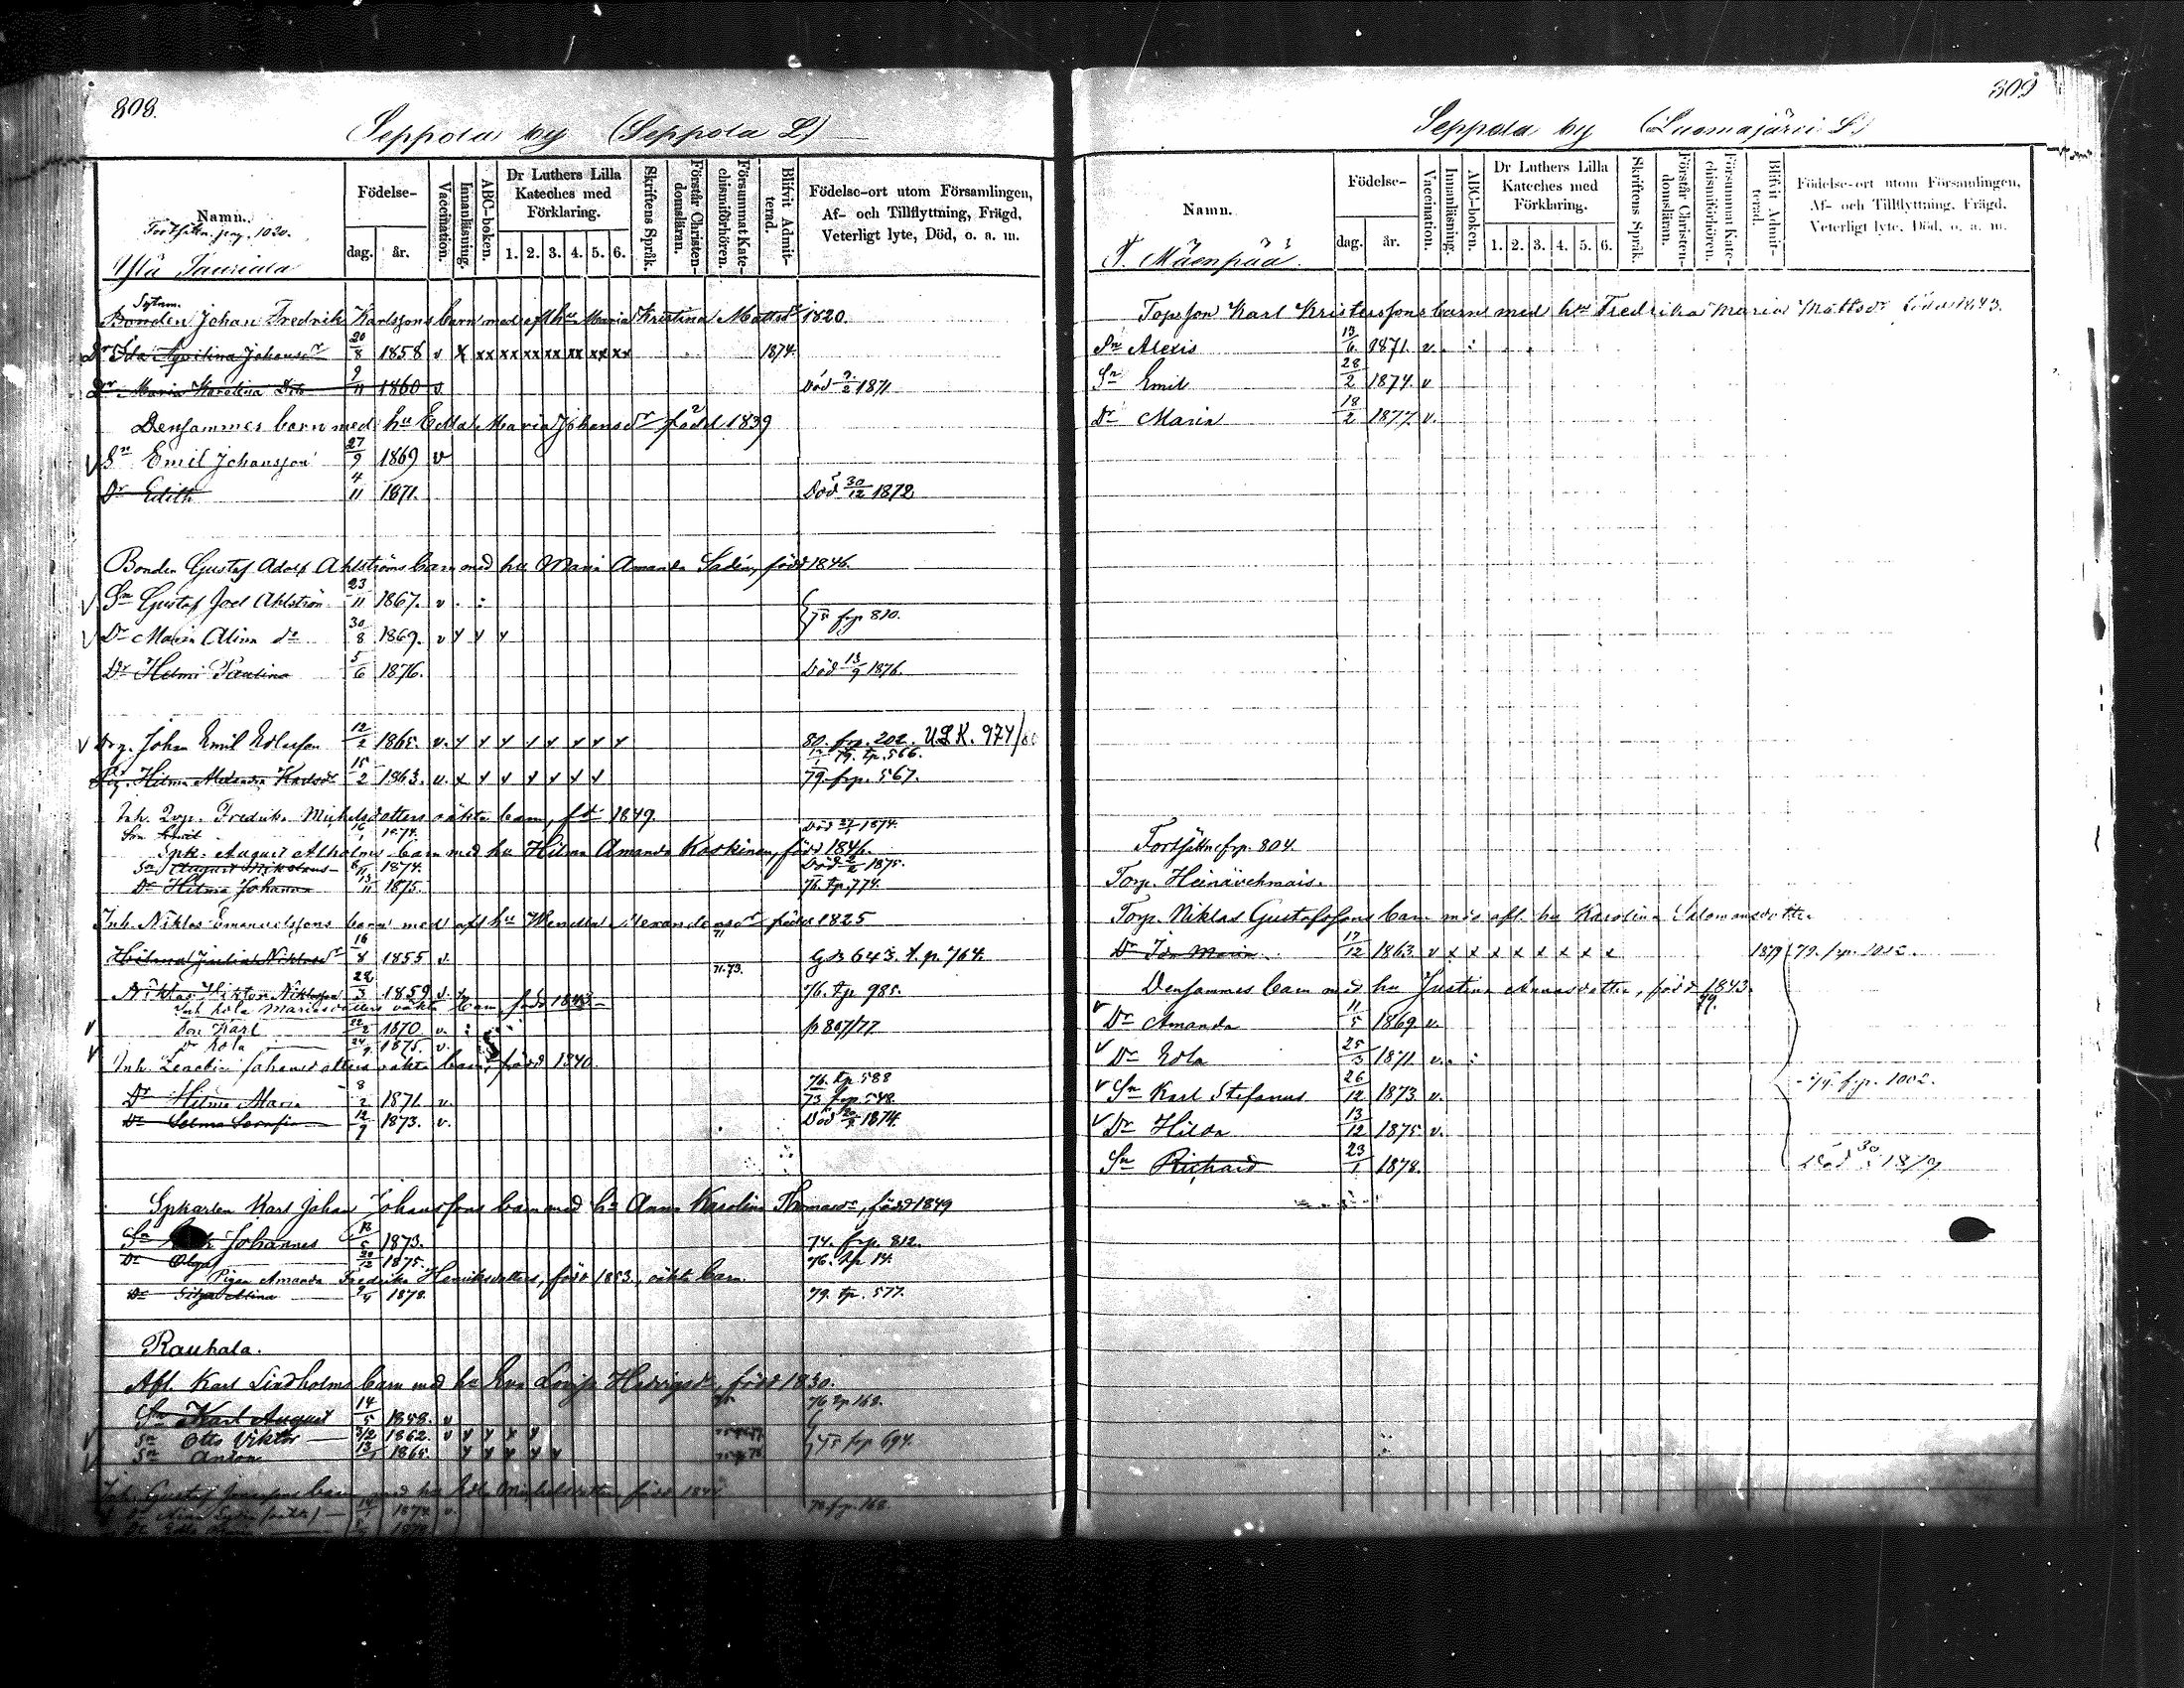 808.
Seppola by (Seppola L.)
Namn.
Fortsättn. pag. 1030.
Födelse-
dag.
år.
Vaccination.
Innanläsning.
ABC-boken.
Dr Luthers Lilla Kateches med Förklaring.
1. 2. 3. 4. 5. 6.
Skriftens Språk.
Förstår Christendomsläran.
Försummat Katechismiförhören.
Blifvit Admitterad.
Födelse-ort utom Församlingen, Af- och Tillflyttning, Frägd, Veterligt lyte, Död, o. a. m.
Yli Tauriala
Sytnm.
Bonden Johan Fredrik Karlssons barn med afl hu Maria Kristina Mattsdr 1820.
Dr Ida Aqvilina Johansdr 20/8 1858 v x xx xx xx xx xx xx xx 1874.
Dr Maria Karolina Dito 9/11 1860 v Död 2/2 1871
Densammes barn med hu Edla Maria Johansdr född 1839
v Sn Emil Johansson 27/9 1869 v
Dr Edith 4/11 1871. Död 30/12 1872
Bonden Gustaf Adolf Ahlströms barn med hu Maria Amanda Sadén, född 1846.
v Sn Gustaf Joel Ahlström 23/11 1867. v . :
75 frp 810.
v Dr Maria Alina do 30/8 1869. v y y y
Dr Helmi Paulina 5/6 1876. Död 13/9 1876.
v Drg. Johan Emil Edlasson 12/2 1865. v. y y y y y y y y 80. frp. 202. U.L.K. 974/
79. tp. 566.
Pig. Hilma Alexandra Karlsdr 15/2 1863. v. x y y y y y y 79. frp. 567.
Inh. Qvp. Fredrika Michelsdotters oäkta barn, fd 1849.
Sn Emil 16/1 1874. Död 27/1 1874.
Spk. August Alholms barn med hu Hilma Amanda Koskinen, född 1846.
Sn August Nikolaus 8/11 1874. Död 2/2 1875.
Dr Hilma Johanna 13/11 1875. 76. tp. 774.
Inh. Niklas Emanuelssons barn med afl hu Wendla Alexandersdr född 1825
71
Hilma Julia Niklasdr 16/8 1855 v. G B 643. t. p. 764.
71.73.
Niklas Viktor Niklasson 28/3 1859 v. x 76. tp 985.
Inh Lola Mariasdotters oäkta barn född 1843
v Son Karl 22/2 1870 v. : p 807/77
v Dr Lola 24/9 1875. v.
Inh. Leactin Johansdotters oäkta barn, född 1840.
76. tp 588
Dr Hilma Maria 8/2 1871. v. 73 frp 548.
Dr Selma Serafia 12/7 1873. v. Död 20/5 1874.
Spkarlen Karl Johan Johanssons barn med hu Anna Karolina Thomasdr, född 1849
Sn Johannes 13/5 1873. 74. frp. 812.
Dr Olga 20/12 1875. 76. tp 14.
Pigan Amanda Fredrika Henriksdotters, född 1853, oäkta barn.
Dr Silja Alina 9/4 1878. 79. tp. 577.
Rauhala.
Afl. Karl Lindholms barn med hu Eva Lovisa Hedvigsdr, född 1830.
Sn Karl August 14/5 1858. v 76 tp 162.
v Sn Otto Viktor 3/2 1862. v y y y y
75 frp 694.
v Sn Anton 13/1 1865. y y y y y
Inh. Gustaf Jonassons barn med hu Edla Michelsdotter född 184
1874 v. 78 frp. 168.
809
Seppola by (Luomajärvi L.)
Namn.
Födelse-
dag.
år.
Vaccination.
Innanläsning.
ABC-boken.
Dr Luthers Lilla Kateches med Förklaring.
1. 2. 3. 4. 5. 6.
Skriftens Språk.
Förstår Christendomsläran.
Försummat Katechismiförhören.
Blifvit Admitterad.
Födelse-ort utom Församlingen, Af- och Tillflyttning, Frägd, Veterligt lyte, Död, o. a. m.
T. Mäenpää.
Torpson Karl Kristerssons barn med hu Fredrika Maria Mattsdr född 1843.
Sn Alexis 13/6 1871. v. . :
Sn Emil 28/2 1874. v
Dr Maria 18/2 1877. v.
Fortsättn. frp. 804.
Torp. Heinävehmais.
Torp. Niklas Gustafssons barn med afl. hu Karolina Salomonsdotter
Dr Ida Maria 17/12 1863 v x x x x x x x x 1879 79. frp. 1012.
Densammes barn med hu Justina Annasdotter, född 1843.
79.
v Dr Amanda 11/5 1869 v.
v Dr Edla 25/3 1871 v. . :
v Sn Karl Stefanus 26/12 1873 v. 79. frp. 1002.
v Dr Hilda 13/12 1875 v.
Sn Richard 23/1 1878. Död 30 1879